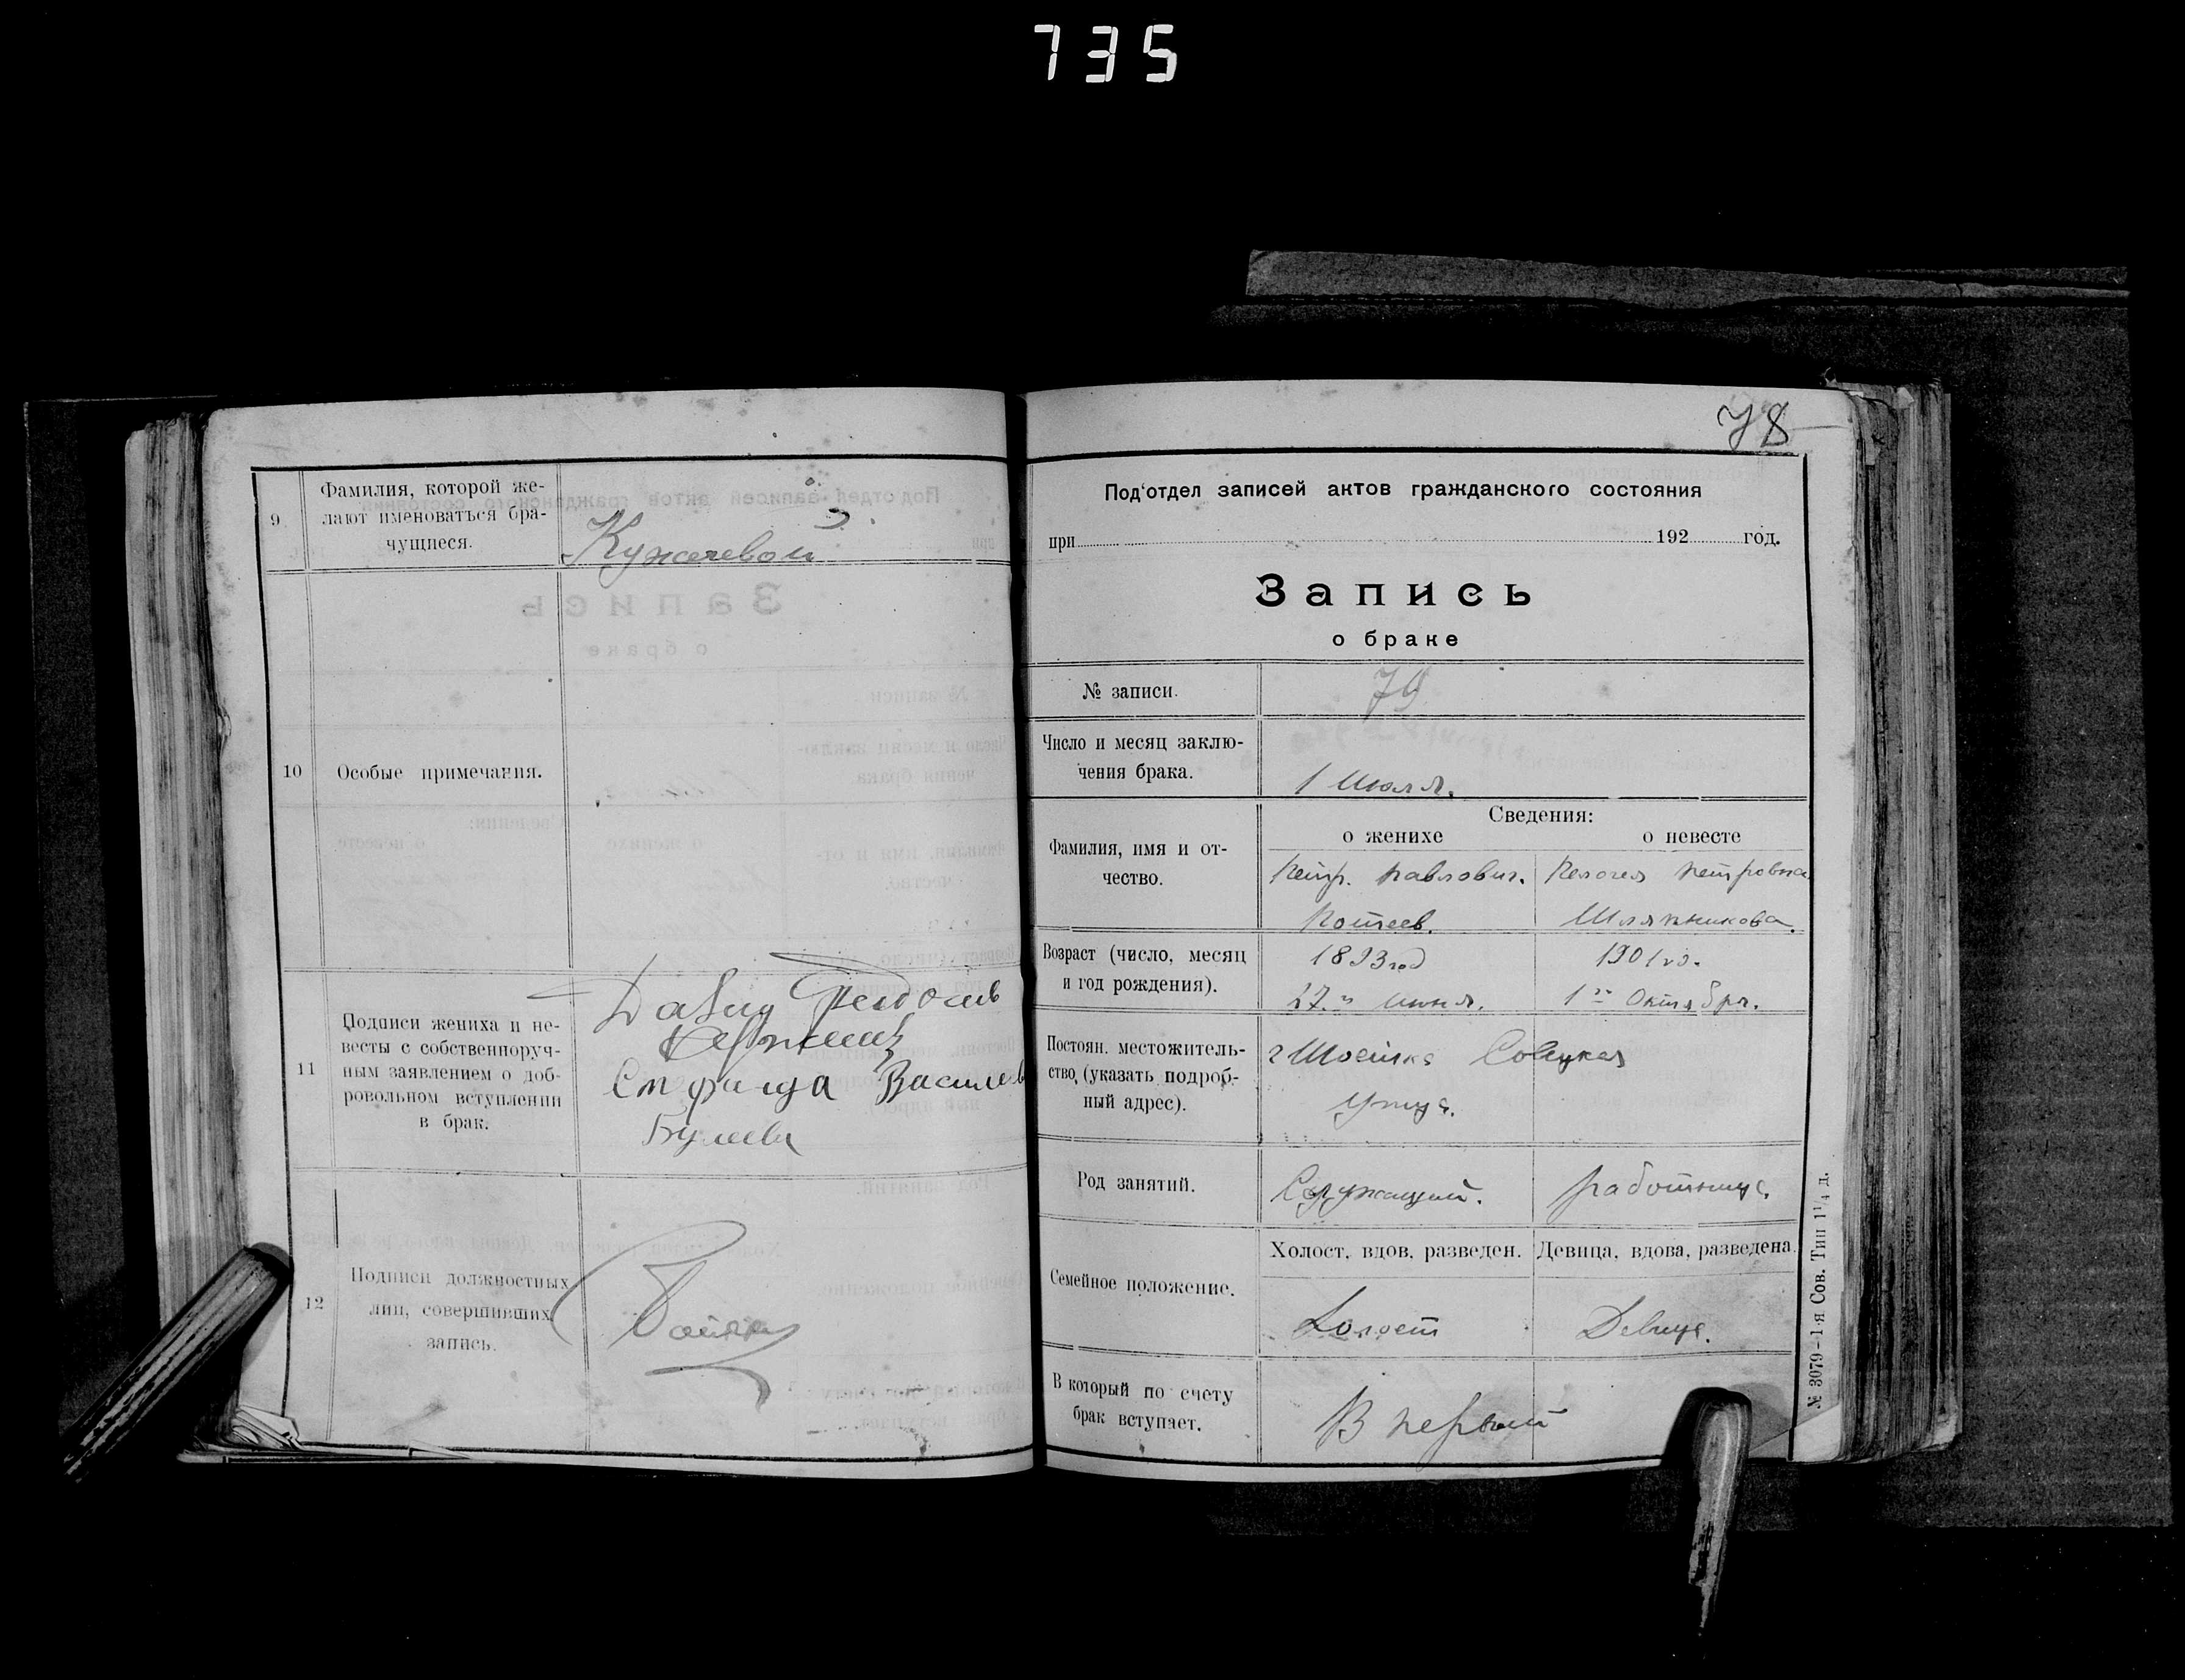 735
9
Фамилия, которой же-
лают именоваться бра-
чущиеся.
10
Особые примечания.
11
Подписи жениха и не-
весты с собственноруч-
ным заявлением о доб-
ровольном вступлении
в брак.
Давид
Василев
12
Подписи должностных
лиц, совершивших
запись.
78
Под'отдел записей актов гражданского состояния
при 192 год.
Запись
о браке
№ записи.
79
Число и месяц заклю-
чения брака.
1 Июля.
Сведения:
о женихе
о невесте
Фамилия, имя и от-
чество.
Петр. Павлович.
Потеев.
Пелогея Петровна
Шляпникова.
Возраст (число, месяц
и год рождения).
1893 год
27.го Июня.
1901 го.
1го Октября.
Постоян. местожитель-
ство, (указать подроб-
ный адрес).
Советская
Улица.
Род занятий.
Служащий.
работница.
Семейное положение.
Холост, вдов, разведен.
Девица, вдова, разведена.
Холост
Девица.
В который по счету
брак вступает.
В первый
№ 3079–1-я Сов. Тип 1¹/₄ д.